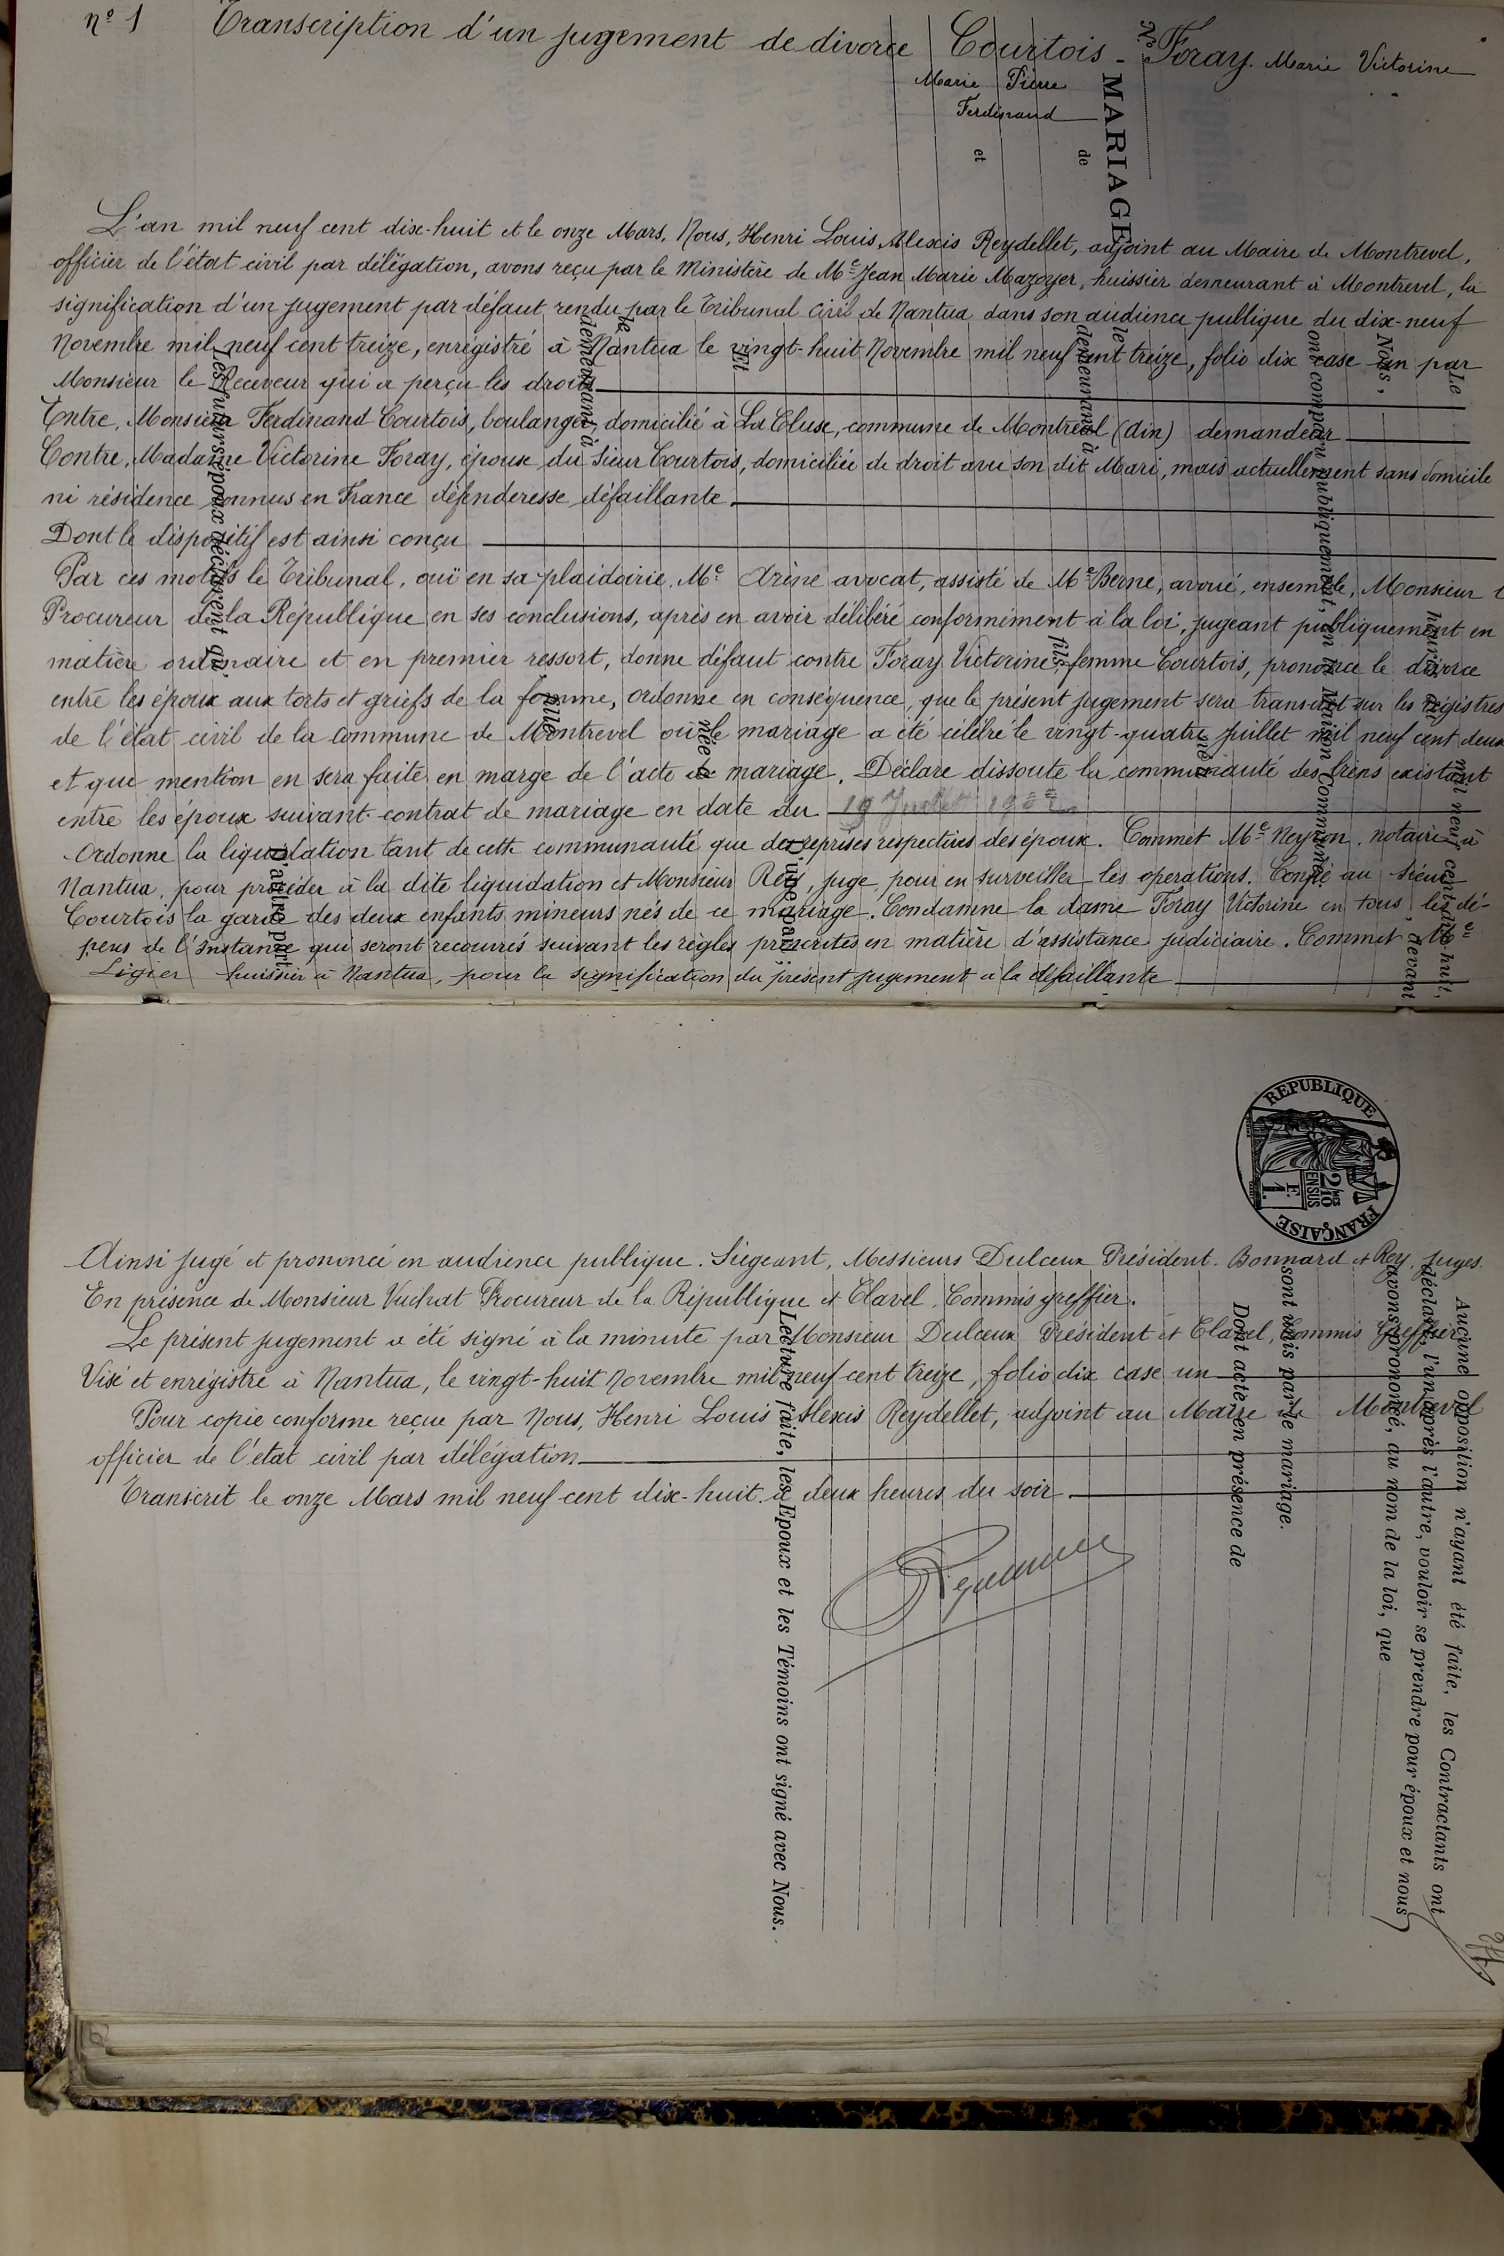 nº 1 Transcription d'un jugement de divorce Courtois - Foray. Marie Victorine
Marie Pierre
Ferdinand
L'an mil neuf cent dix-huit et le onze Mars, Nous, Henri Louis Alexis Reydellet, adjoint au Maire de Montrevel,
officier de l'état civil par délégation, avons reçu par le Ministère de Me Jean Marie Mazoyer, huissier demeurant à Montrevel, la
signification d'un jugement par défaut rendu par le Tribunal Civil de Nantua dans son audience publique du dix-neuf
Novembre mil neuf cent treize, enregistré à Nantua le vingt-huit Novembre mil neuf cent treize, folio dix case un par
Monsieur le Receveur qui a perçu les droits
Entre, Monsieur Ferdinand Courtois, boulanger, domicilié à La Cluse, commune de Montréal (Ain) demandeur
Contre, Madame Victorine Foray, épouse du Sieur Courtois, domiciliée de droit avec son dit Mari, mais actuellement sans domicile
ni résidence connus en France défenderesse défaillante
Dont le dispositif est ainsi conçu
Par ces motifs le Tribunal, ouï en sa plaidoirie, Me Arène avocat, assisté de Me Berne, avoué, ensemble, Monsieur l
Procureur de la République en ses conclusions, après en avoir délibéré conformément à la loi, jugeant publiquement en
matière ordinaire et en premier ressort, donne défaut contre Foray Victorine, femme Courtois, prononce le divorce
entre les époux aux torts et griefs de la femme, ordonne en conséquence que le présent jugement sera transcrit sur les régistres
de l'état civil de la commune de Montrevel où le mariage a été célébré le vingt-quatre juillet mil neuf cent deux
et que mention en sera faite en marge de l'acte de mariage. Déclare dissoute la communauté des biens existant
entre les époux suivant contrat de mariage en date du 19 Juillet 1902
Ordonne la liquidation tant de cette communauté que des reprises respectives des époux. Commet Me Neyron, notaire à
Nantua, pour procéder à la dite liquidation et Monsieur Rey, juge, pour en surveiller les opérations. Confie au sieur
Courtois la garde des deux enfants mineurs nés de ce mariage. Condamne la dame Foray Victorine en tous, les dé-
pens de l'Instance qui seront recouvrés suivant les règles prescrites en matière d'assistance judiciaire. Commet Me
Ligier huissier à Nantua, pour la signification du présent jugement à la défaillante
Ainsi jugé et prononcé en audience publique. Siégeant, Messieurs Dulceux Président. Bonnard et Rey, juges.
En présence de Monsieur Vuchat Procureur de la République et Clavel, Commis greffier.
Le présent jugement a été signé à la minute par Monsieur Dulceux Président et Clavel, commis Greffier
Visé et enrégistré à Nantua, le vingt-huit Novembre mil neuf cent treize, folio dix case un
Pour copie conforme reçue par Nous, Henri Louis Alexis Reydellet, adjoint au Maire de Montrevel
officier de l'état civil par délégation
Transcrit le onze Mars mil neuf cent dix-huit à deux heures du soir
No
MARIAGE
de
et
Le
mil neuf cent dix-huit,
heures
Nous,
devant
ont comparu publiquement, en la Maison Commune:
le
né à
demeurant à
fils
D'une part:
Et
née à
le
demeurant à
fille
D'autre part:
Les futurs époux déclarent qu
REPUBLIQUE FRANÇAISE
2/10 EN SUS
1 F.
Aucune opposition n'ayant été faite, les Contractants ont
déclaré l'un après l'autre, vouloir se prendre pour époux et nous
avons prononcé, au nom de la loi, que
sont unis par le mariage.
Dont acte en présence de
Lecture faite, les Epoux et les Témoins ont signé avec Nous.